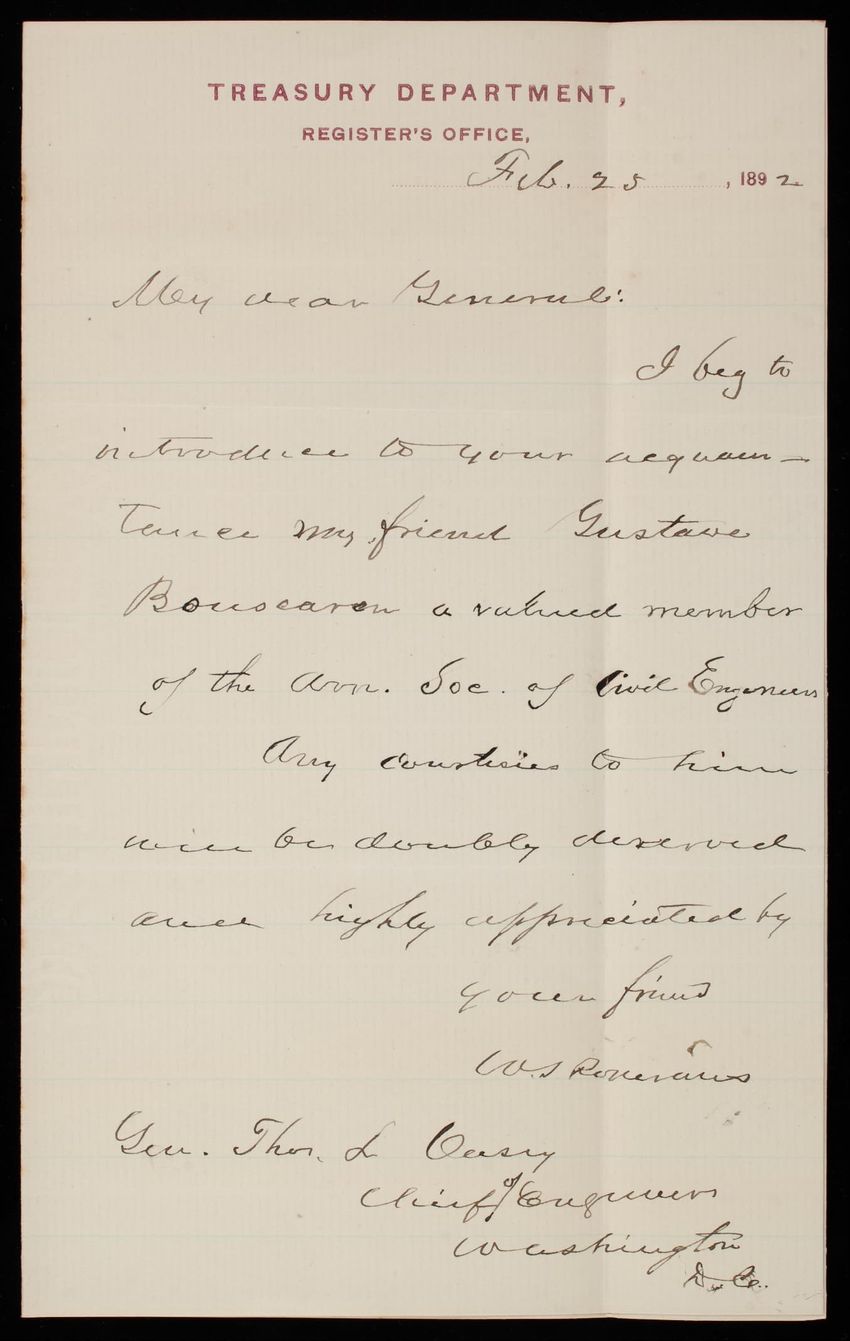 TREASURY DEPARTMENT,
REGISTER'S OFFICE,
Feb. 25, 1892
My dear General:
I beg to
introduce to your acquain-
tance my friend Gustave
Bouscaren a valued member
of the Am. Soc. of Civil Engineers
Any courtesies to him
will be doubly deserved
and highly appreciated by
your friend
W.S Rosecrans
Gen. Thos. L Casey
Chief of Engineers
Washington
D.C.